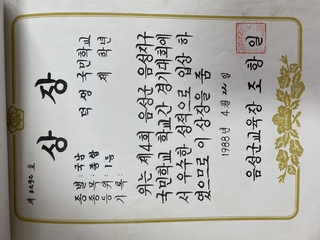 제 3292 호
상장
덕생 국민학교
제 학년
종별 : 국남
종목 : 종합
등위 : 1등
기록 :
위는 제4회 음성군 음성지구
국민학교 학교간 경기대회에
서 우수한 성적으로 입상 하
였으므로 이 상장을 줌
1988년 4월 22일
음성군교육장 조항일